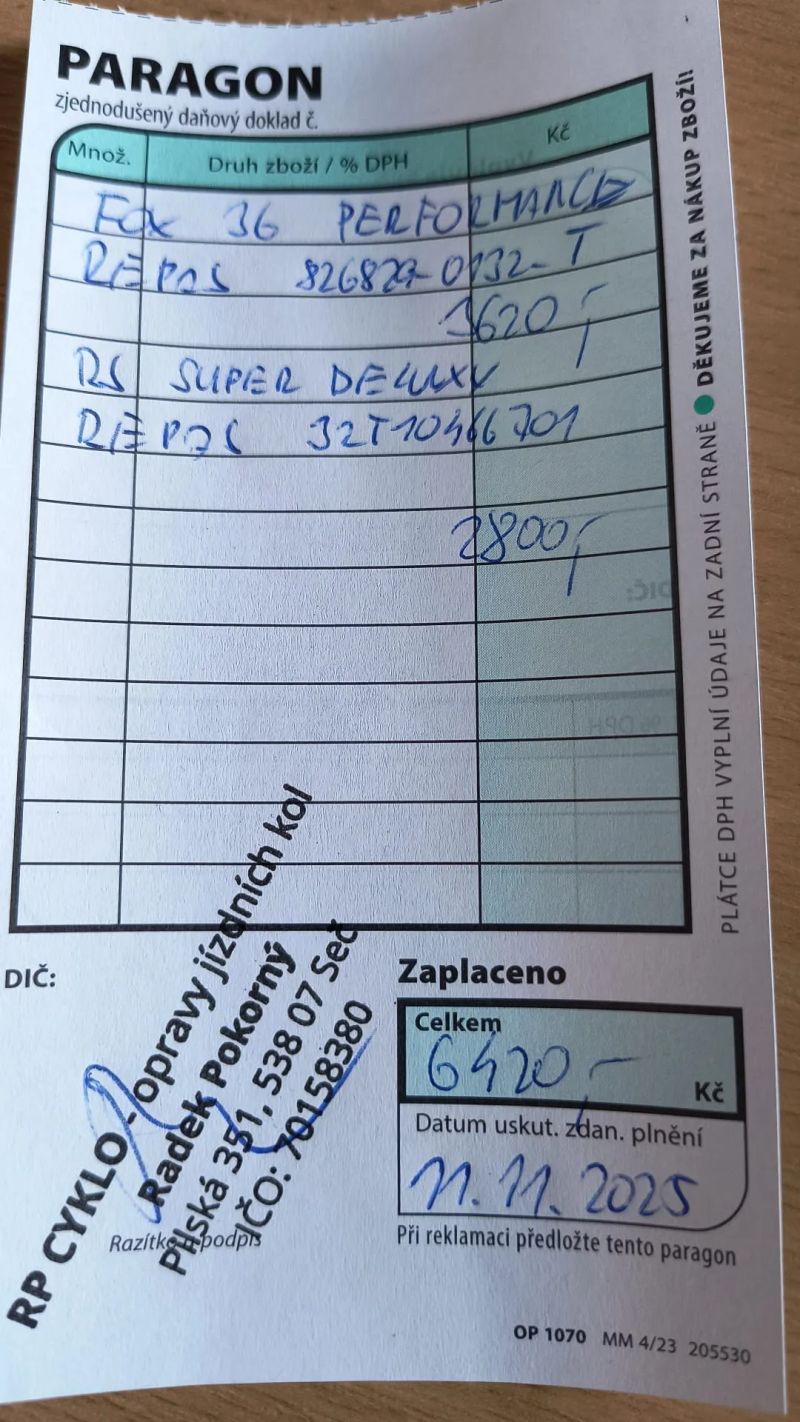 PARAGON
zjednodušený daňový doklad č.
Množ. Druh zboží / % DPH Kč
FOX 36 PERFORMANCE
REPAS 826829-0132-T
3620,-
RS SUPER DELUXE
REPAS 32T10466701
2800,-
DIČ:
Zaplaceno
Celkem
6420,- Kč
Datum uskut. zdan. plnění
11.11.2025
Při reklamaci předložte tento paragon
RP CYKLO - opravy jízdních kol
Radek Pokorný
Pilská 351, 538 07 Seč
IČO: 70158380
Razítko a podpis
OP 1070 MM 4/23 205530
PLÁTCE DPH VYPLNÍ ÚDAJE NA ZADNÍ STRANĚ ● DĚKUJEME ZA NÁKUP ZBOŽÍ!
DIČ:
% DPH